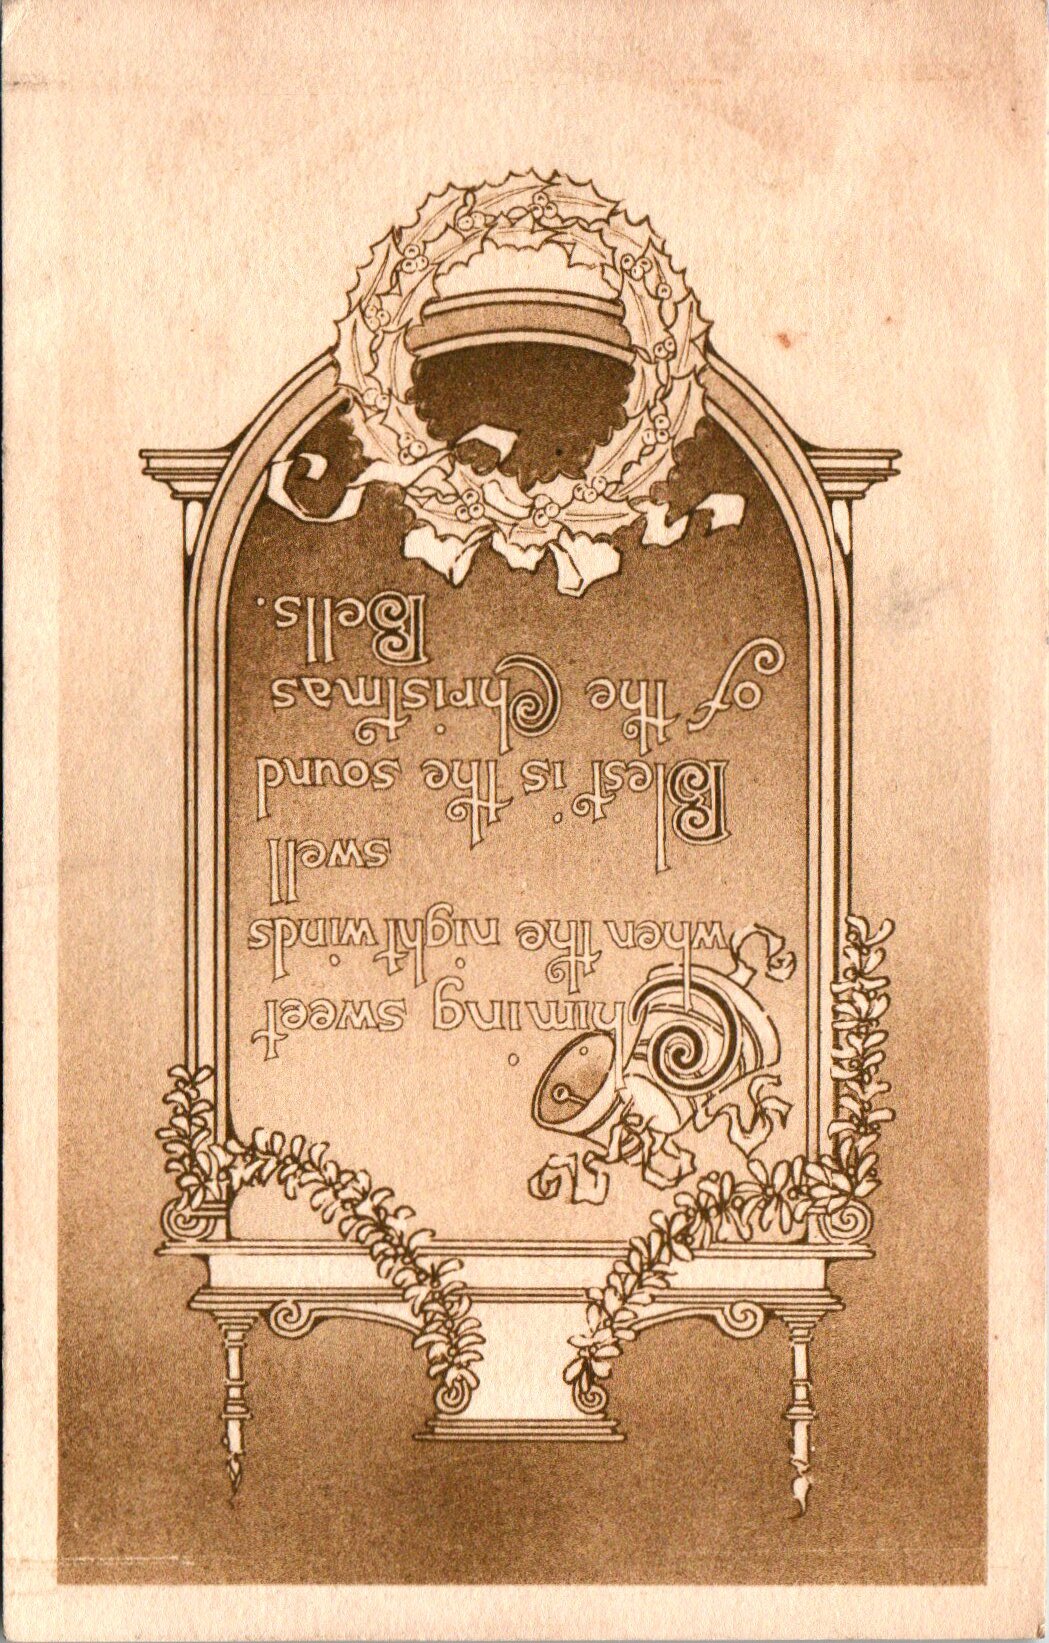 Chiming sweet
when the night winds
swell
Blest is the sound
of the Christmas
Bells.